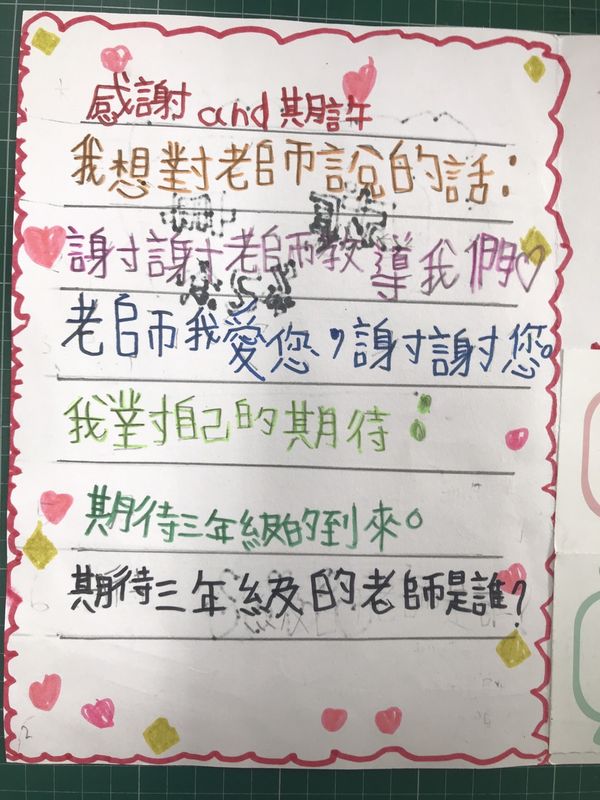 感謝and期許
我想對老師說的話：
謝謝老師教導我們♡
老師我愛您，謝謝您。
我對自己的期待：
期待三年級的到來。
期待三年級的老師是誰？
2